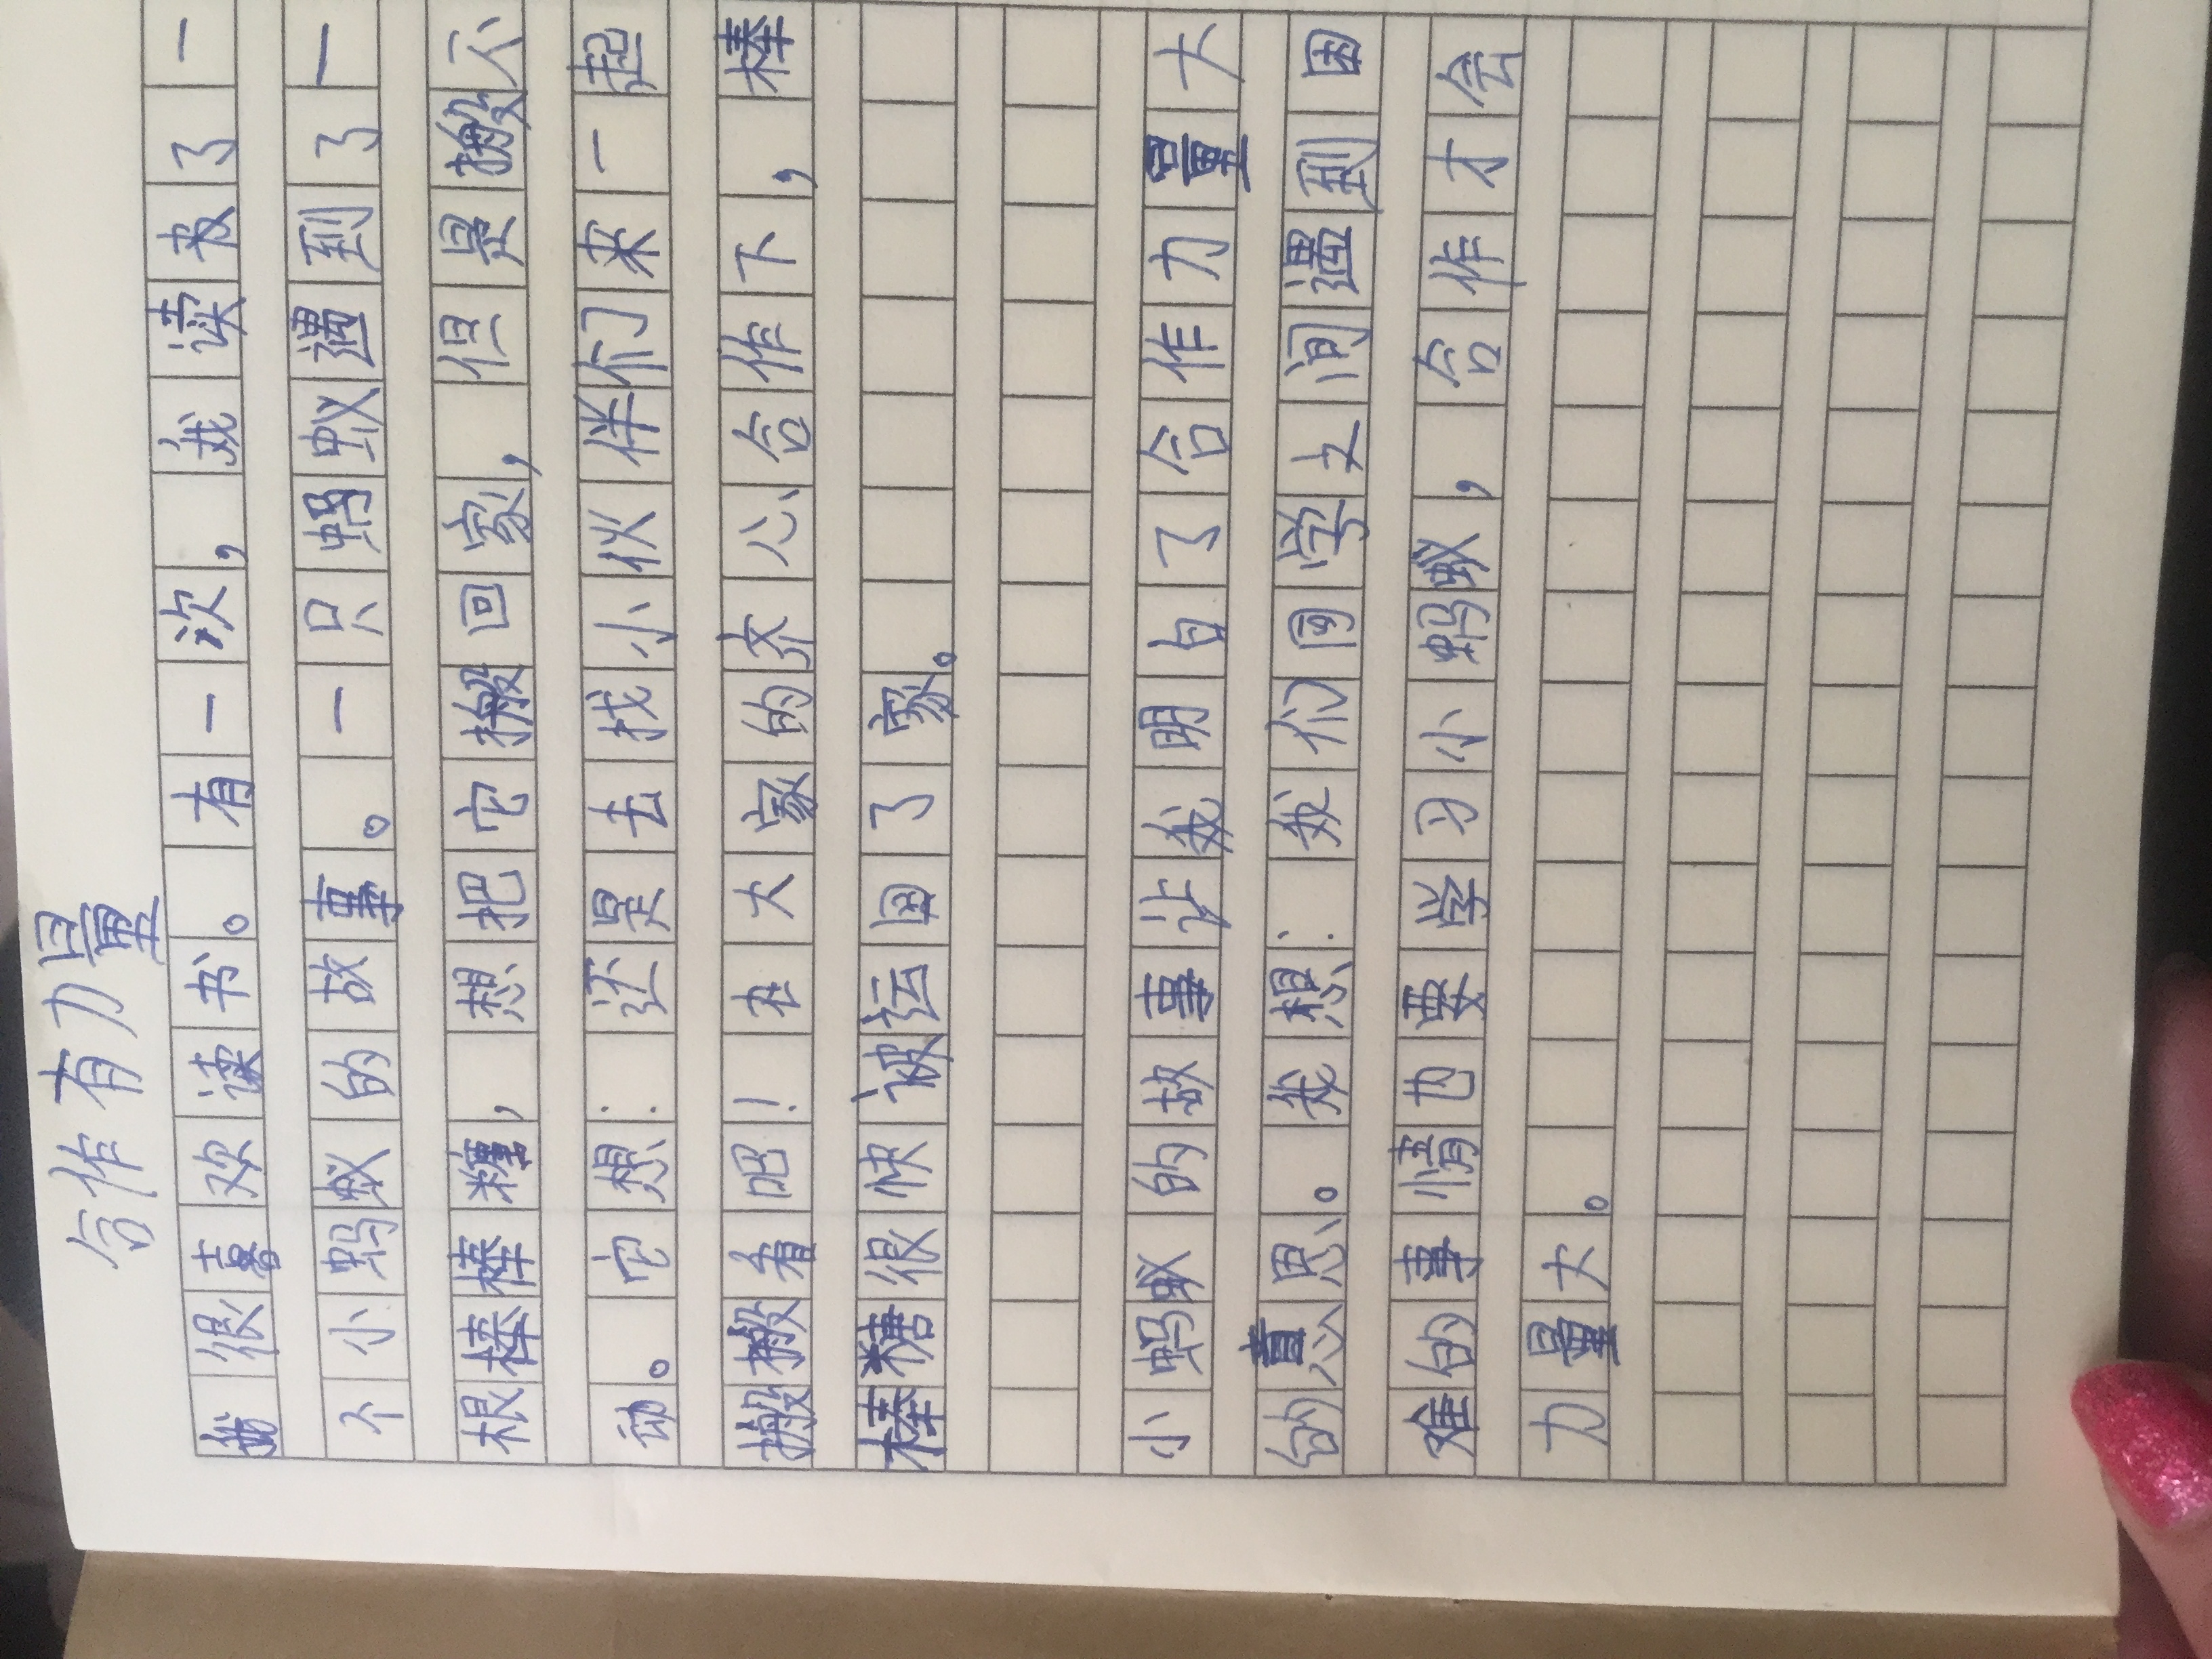 合作有力量
我很喜欢读书。有一次,我读了一
个小蚂蚁的故事。一只蚂蚁遇到了一
根棒棒糖,想把它搬回家,但是搬不
动。它想:还是去找小伙伴们来一起
搬搬看吧!在大家的齐心合作下,棒
棒糖很快被运回了家。
小蚂蚁的故事让我明白了合作力量大
的意思。我想:我们同学之间遇到困
难的事情也要学习小蚂蚁,合作才会
力量大。